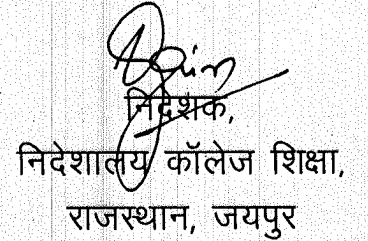 निदेशक,
निदेशालय कॉलेज शिक्षा,
राजस्थान, जयपुर